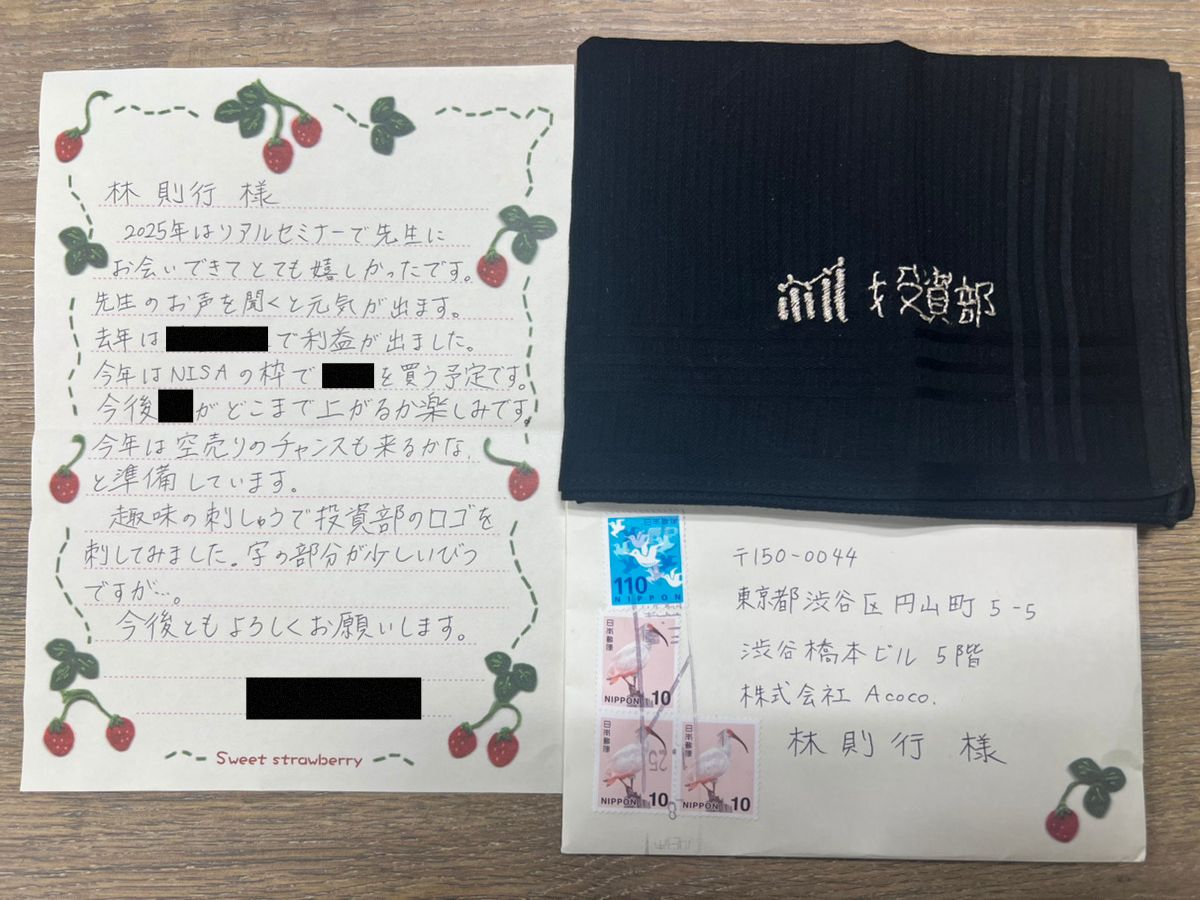 林 則行 様
2025年はリアルセミナーで先生に
お会いできてとても嬉しかったです。
先生のお声を聞くと元気が出ます。
去年は で利益が出ました。
今年はNISAの枠で を買う予定です。
今後 がどこまで上がるか楽しみです。
今年は空売りのチャンスも来るかな、
と準備しています。
趣味の刺しゅうで投資部のロゴを
刺してみました。字の部分が少しいびつ
ですが…。
今後ともよろしくお願いします。
Sweet strawberry
投資部
110
NIPPON
日本郵便
NIPPON 10
日本郵便
NIPPON 10
日本郵便
NIPPON 10
〒150-0044
東京都渋谷区円山町5-5
渋谷橋本ビル 5階
株式会社 Acoco.
林 則行 様